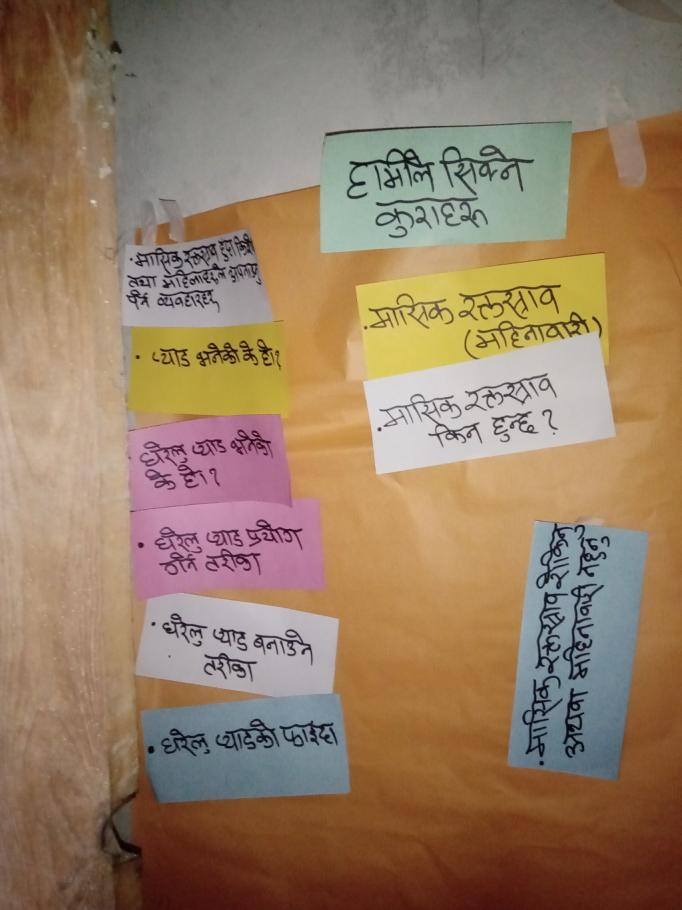 हामीले सिक्ने
कुराहरू
• मासिक रक्तस्राव
(महिनावारी)
• मासिक रक्तस्राव
किन हुन्छ?
• मासिक रक्तस्राव रोकिनु
अथवा महिनावारी नहुनु
• मासिक रक्तस्राव हुदा
तथा महिनाहरूले
व्यवहारहरू
• प्याड भनेको के हो?
• घरेलु प्याड भनेको
के हो?
• घरेलु प्याड प्रयोग
गर्ने तरीका
• घरेलु प्याड बनाउने
तरीका
• घरेलु प्याडको फाइदा